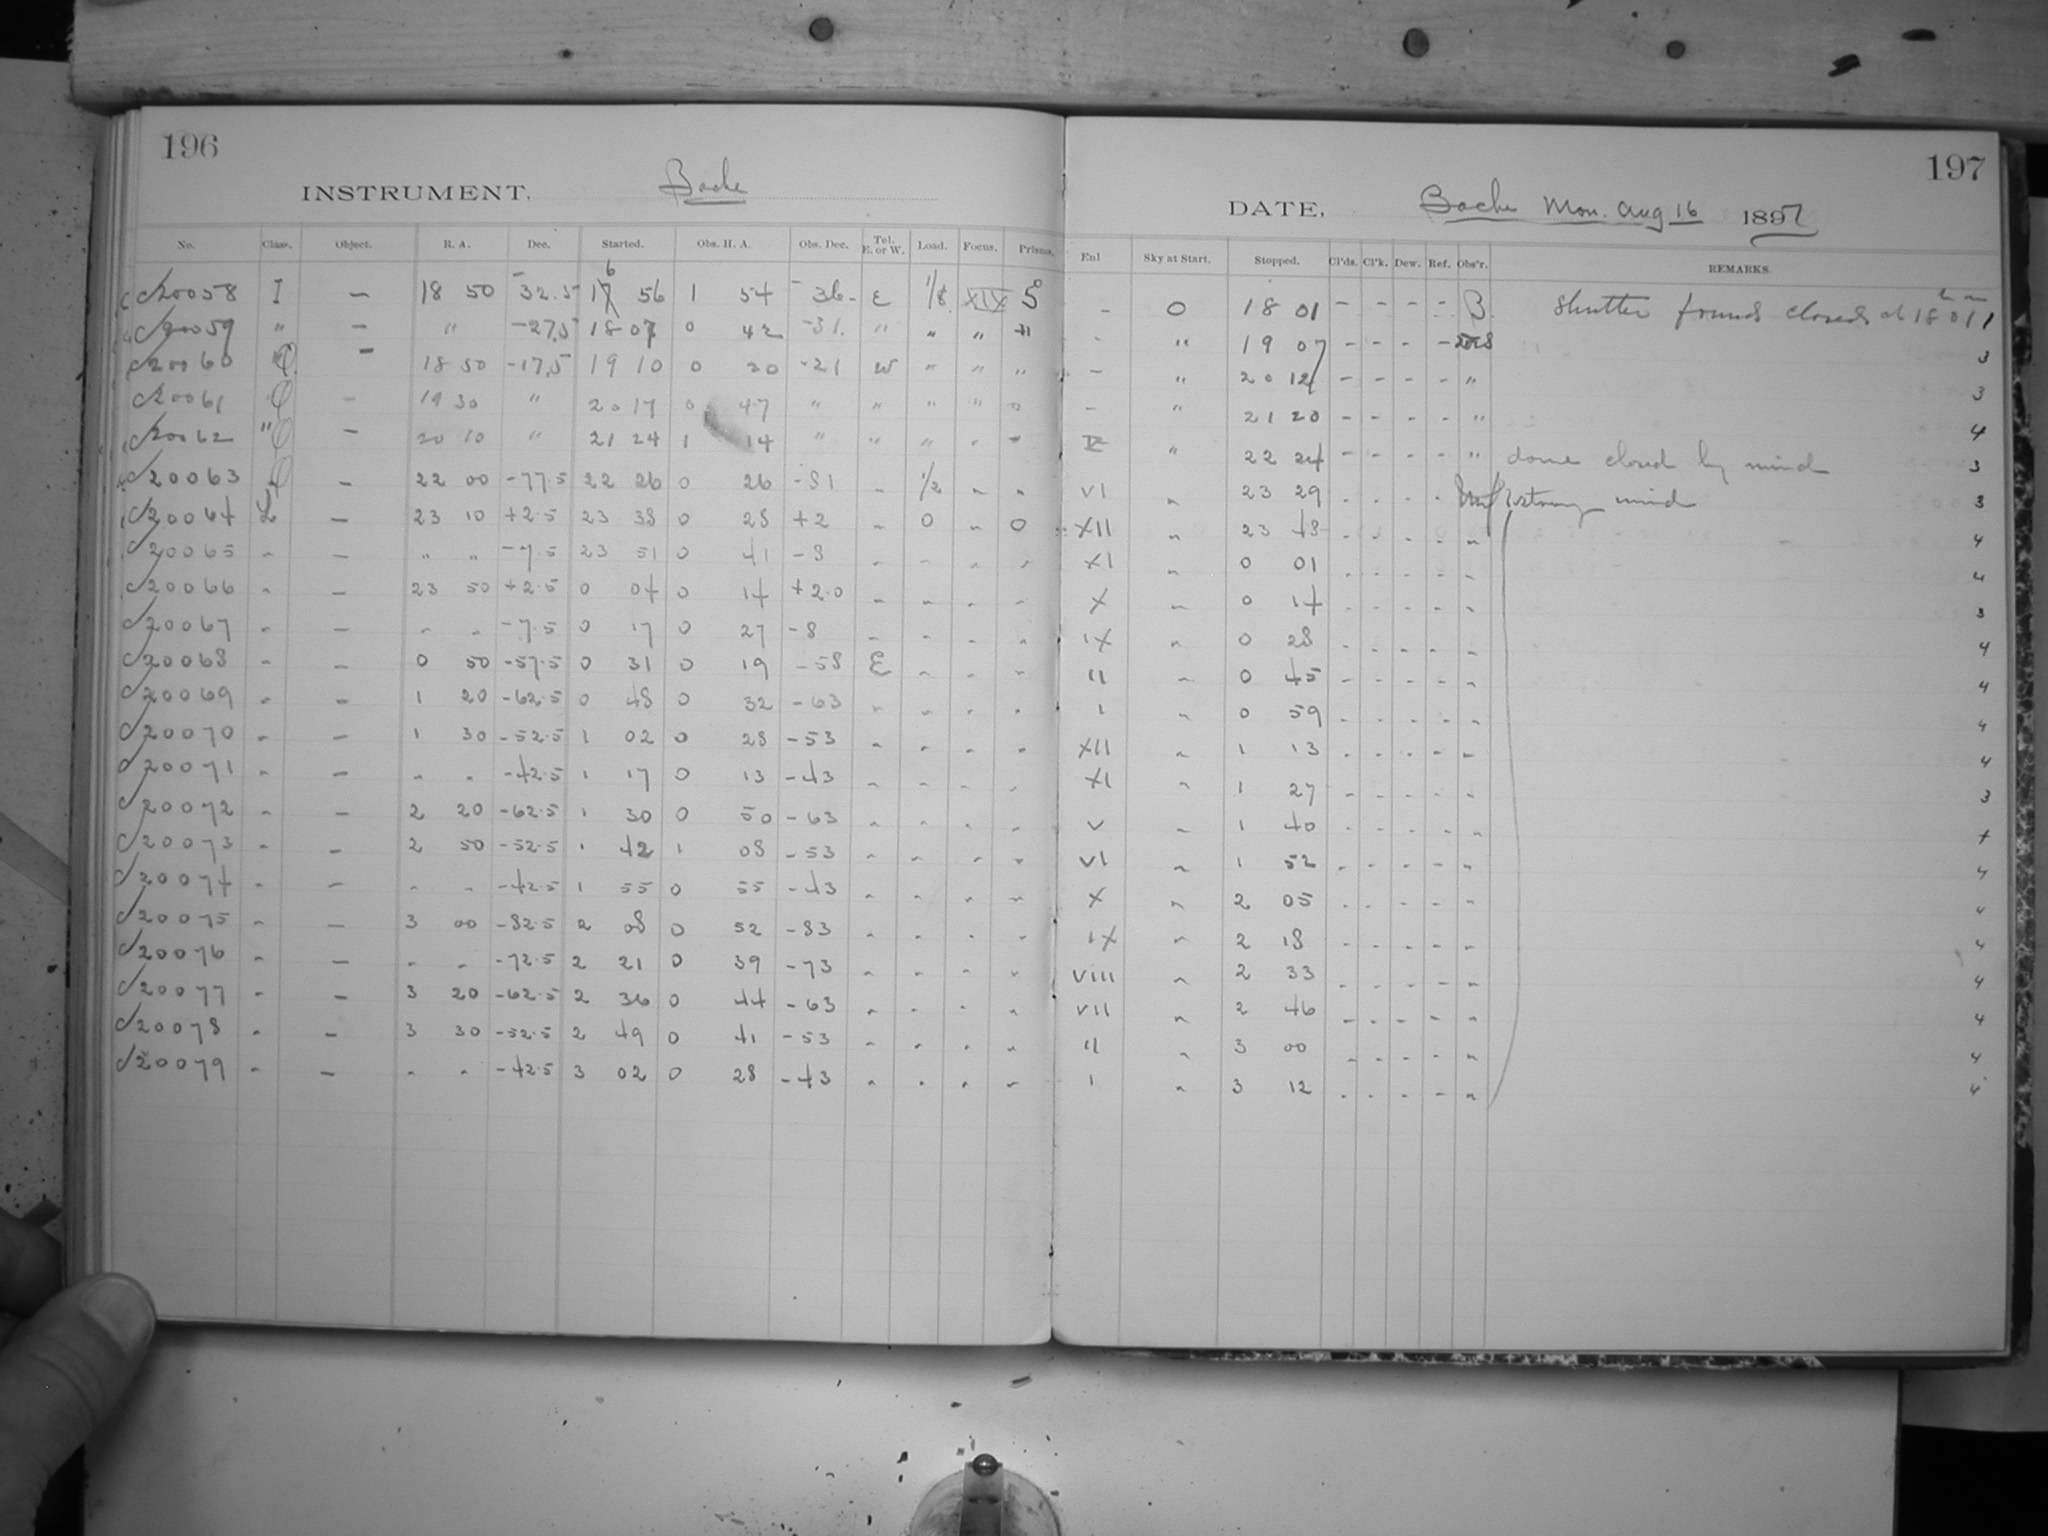 196
INSTRUMENT, Bache
No. Class. Object. R. A. Dec. Started. Obs. H. A. Obs. Dec. Tel. E. or W. Load. Focus. Prisms.
20058 I – 18 50 -32.5 6 17 56 1 54 -36 E 1/8 XIX
20059 " – " -27.5 18 07 0 42 -31 " " "
20060 – 18 50 -17.5 19 10 0 20 -21 W " " "
20061 – 19 30 " 20 17 0 47 " " " "
20062 " – 20 10 " 21 24 1 14 " " " "
20063 – 22 00 -77.5 22 26 0 26 -81 " 1/2 " "
20064 L – 23 10 +2.5 23 38 0 28 +2 " 0 " 0
20065 " – " " -7.5 23 51 0 41 -8 " " " "
20066 " – 23 50 +2.5 0 04 0 14 +2.0 " " " "
20067 " – " " -7.5 0 17 0 27 -8 " " " "
20068 " – 0 50 -57.5 0 31 0 19 -58 E " " "
20069 " – 1 20 -62.5 0 48 0 32 -63 " " " "
20070 " – 1 30 -52.5 1 02 0 28 -53 " " " "
20071 " – " " -42.5 1 17 0 13 -43 " " " "
20072 " – 2 20 -62.5 1 30 0 50 -63 " " " "
20073 " – 2 50 -52.5 1 42 1 08 -53 " " " "
20074 " – " " -42.5 1 55 0 55 -43 " " " "
20075 " – 3 00 -82.5 2 08 0 52 -83 " " " "
20076 " – " " -72.5 2 21 0 39 -73 " " " "
20077 " – 3 20 -62.5 2 36 0 44 -63 " " " "
20078 " – 3 30 -52.5 2 49 0 41 -53 " " " "
20079 " – " " -42.5 3 02 0 28 -43 " " " "
197
DATE, Bache Mon. Aug 16 1897
Enl Sky at Start. Stopped. Cl'ds. Cl'k. Dew. Ref. Obs'r. REMARKS.
– 0 18 01 – – – – B. Shutter found closed at 18 01 1
– " 19 07 – – – – 3
– " 20 12 – – – – " 3
– " 21 20 – – – – " 4
" 22 24 – – – – " dome closed by wind 3
VI " 23 29 – – – – strong wind 3
XII " 23 48 – – – – " 4
XI " 0 01 – – – – " 4
X " 0 14 – – – – " 3
IX " 0 28 – – – – " 4
II " 0 45 – – – – " 4
I " 0 59 – – – – " 4
XII " 1 13 – – – – " 4
XI " 1 27 – – – – " 3
V " 1 40 – – – – " 4
VI " 1 52 – – – – " 4
X " 2 05 – – – – " 4
IX " 2 18 – – – – " 4
VIII " 2 33 – – – – " 4
VII " 2 46 – – – – " 4
II " 3 00 – – – – " 4
I " 3 12 – – – – " 4